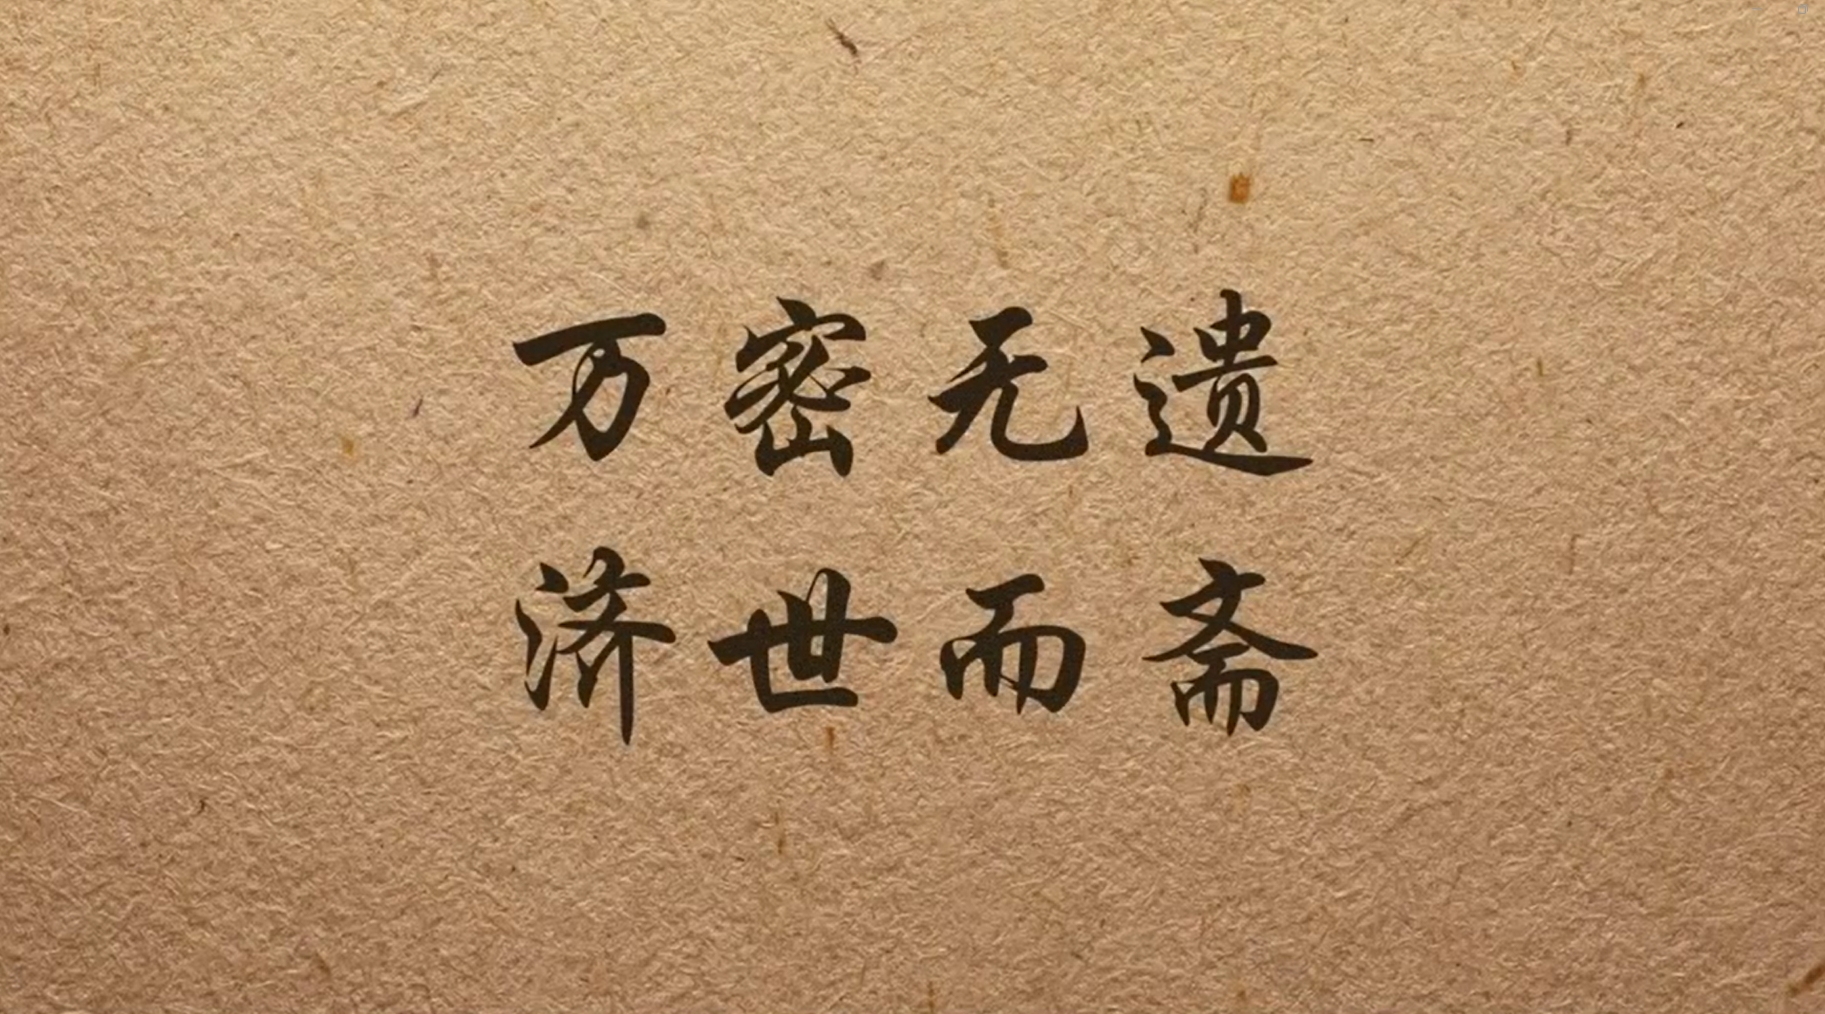 万密无遗
济世而斋